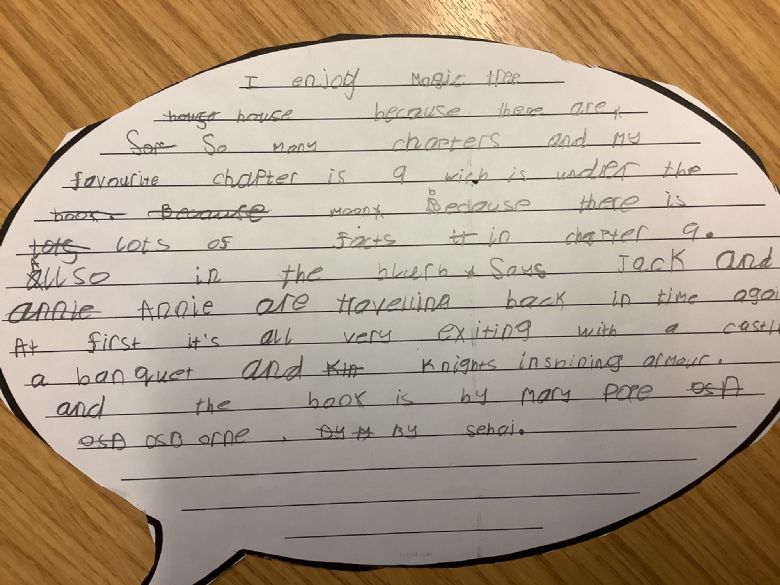 I enjoy Magic tree
house house because there are
Sor So many chapters and my
favourite chapter is 9 wich is under the
book Because moon Because there is
lots lots of facts it in chapter 9.
Allso in the blurb Says Jack and
annie Annie are travelling back in time agai
At first it's all very exiting with a castl
a banquet and Kin Knights in shining armour.
and the book is by Mary Pope OSA
OSA OSB orne. By M By sehai.